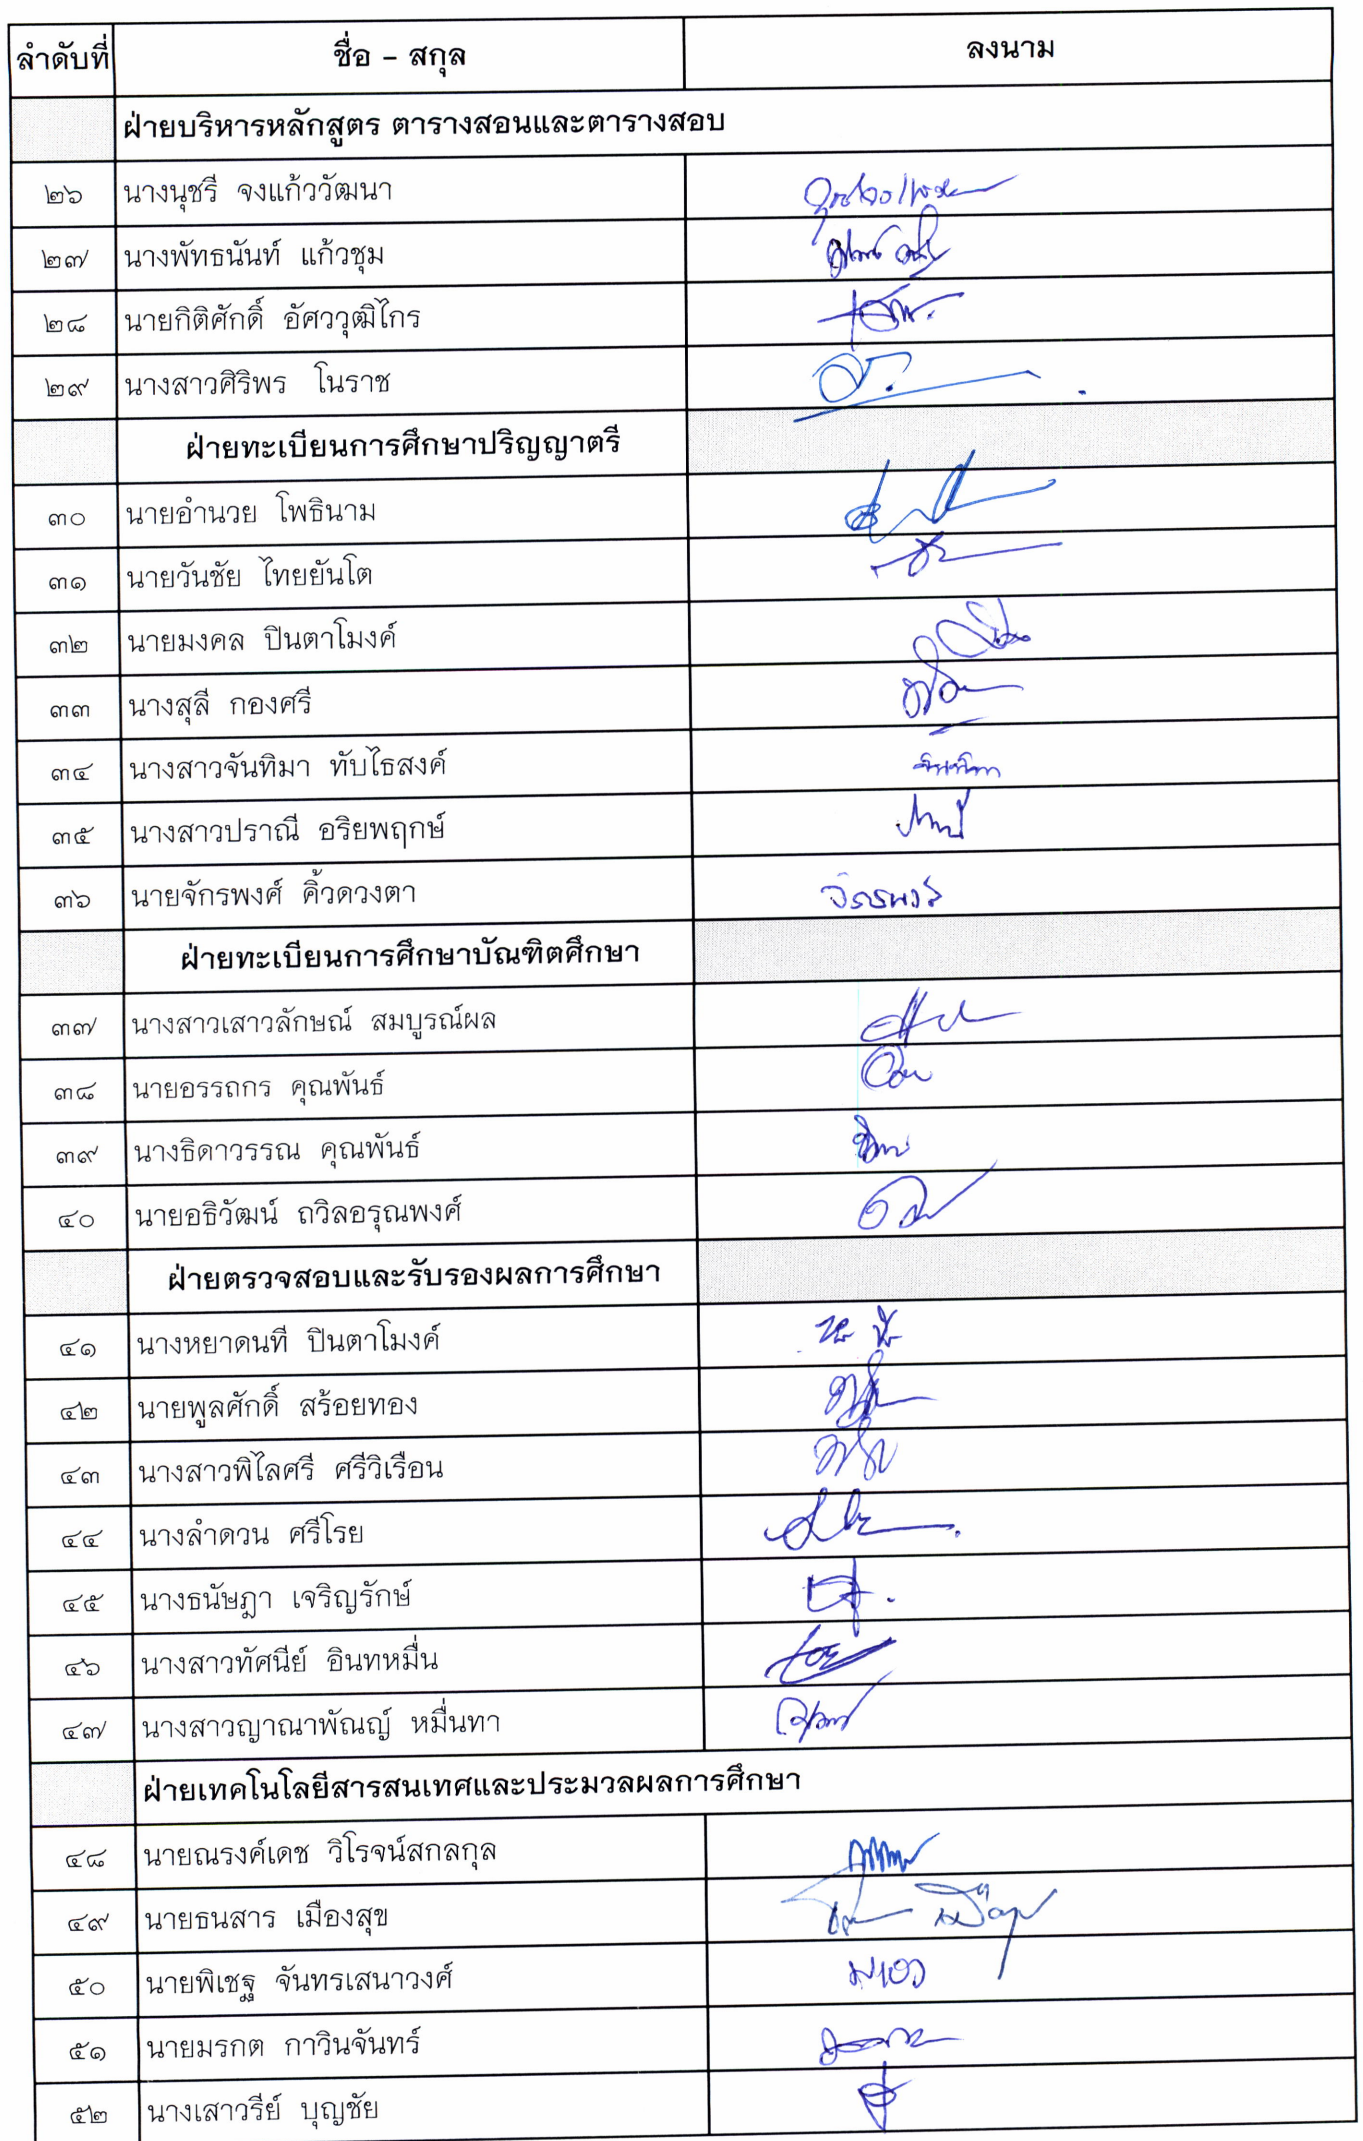 ลำดับที่ ชื่อ - สกุล ลงนาม
ฝ่ายบริหารหลักสูตร ตารางสอนและตารางสอบ
๒๖ นางนุชรี จงแก้ววัฒนา
๒๗ นางพัทธนันท์ แก้วชุม
๒๘ นายกิติศักดิ์ อัศววุฒิไกร
๒๙ นางสาวศิริพร โนราช
ฝ่ายทะเบียนการศึกษาปริญญาตรี
๓๐ นายอำนวย โพธินาม
๓๑ นายวันชัย ไทยยันโต
๓๒ นายมงคล ปินตาโมงค์
๓๓ นางสุลี กองศรี
๓๔ นางสาวจันทิมา ทับไธสงค์
๓๕ นางสาวปราณี อริยพฤกษ์
๓๖ นายจักรพงศ์ คิ้วดวงตา จักรพงศ์
ฝ่ายทะเบียนการศึกษาบัณฑิตศึกษา
๓๗ นางสาวเสาวลักษณ์ สมบูรณ์ผล
๓๘ นายอรรถกร คุณพันธ์
๓๙ นางธิดาวรรณ คุณพันธ์
๔๐ นายอธิวัฒน์ ถวิลอรุณพงศ์
ฝ่ายตรวจสอบและรับรองผลการศึกษา
๔๑ นางหยาดนที ปินตาโมงค์
๔๒ นายพูลศักดิ์ สร้อยทอง
๔๓ นางสาวพิไลศรี ศรีวิเรือน
๔๔ นางลำดวน ศรีโรย
๔๕ นางธนัษฎา เจริญรักษ์
๔๖ นางสาวทัศนีย์ อินทหมื่น
๔๗ นางสาวญาณาพัณญ์ หมื่นทา
ฝ่ายเทคโนโลยีสารสนเทศและประมวลผลการศึกษา
๔๘ นายณรงค์เดช วิโรจน์สกลกุล
๔๙ นายธนสาร เมืองสุข
๕๐ นายพิเชฐ จันทรเสนาวงศ์
๕๑ นายมรกต กาวินจันทร์
๕๒ นางเสาวรีย์ บุญชัย